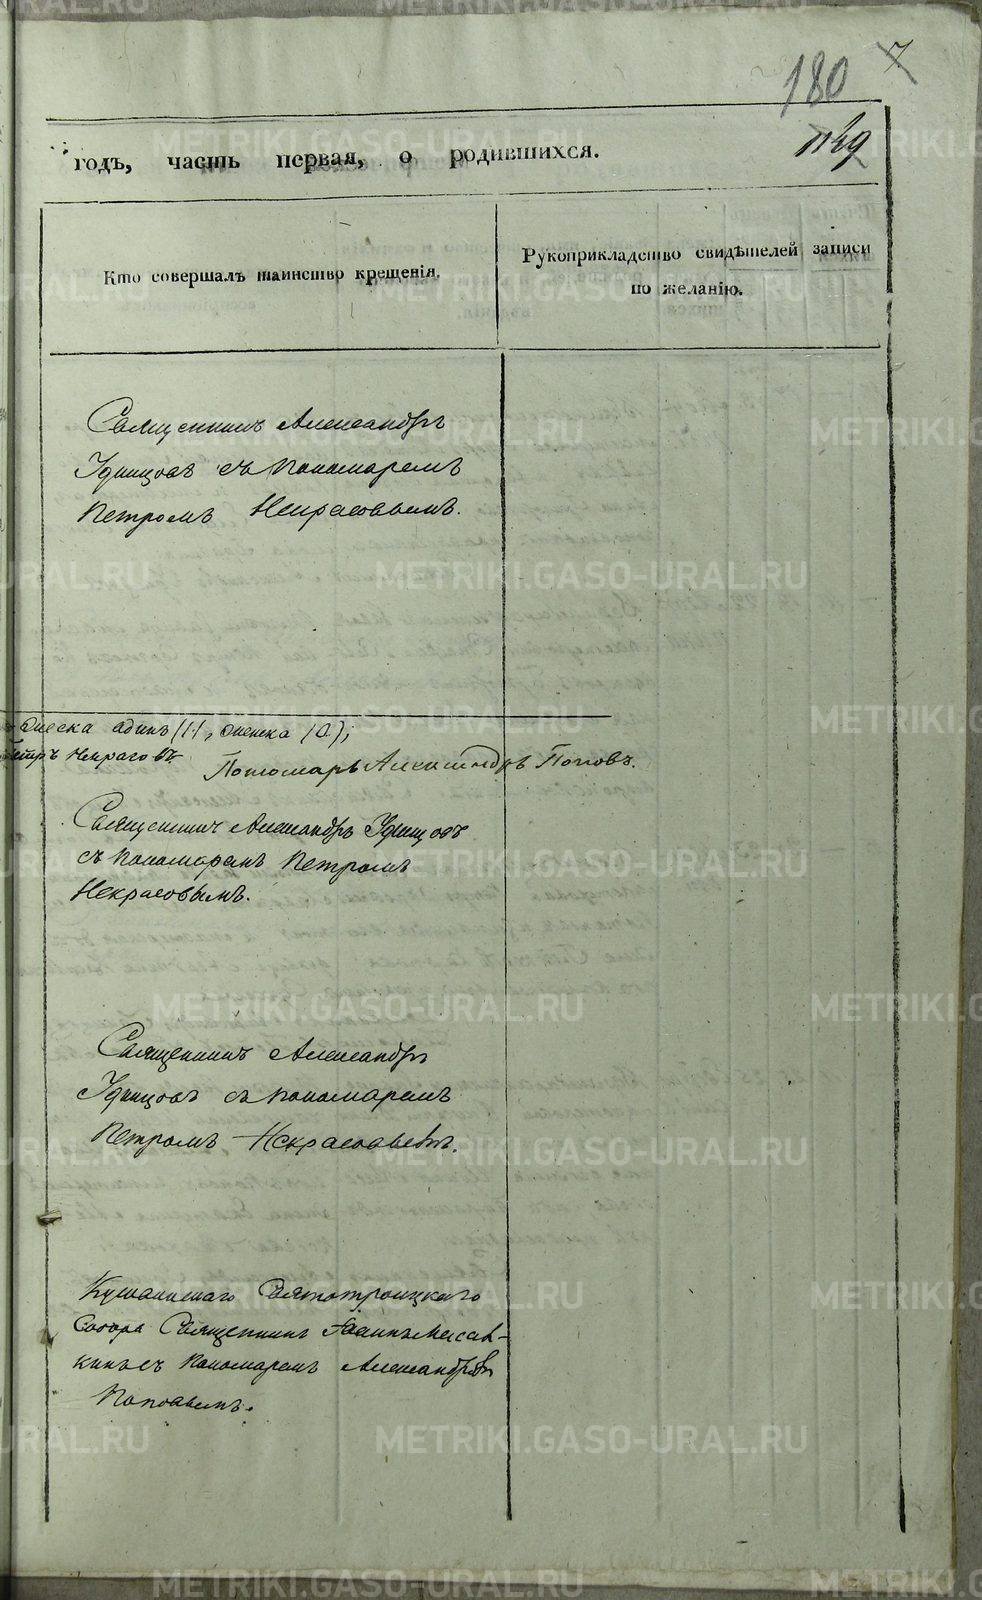 180 7
годъ, часть первая, о родившихся.
Кто совершалъ таинство крещенія.
Рукоприкладство свидѣтелей записи
по желанію.
Священникъ Александръ
Удинцовъ съ пономаремъ
Петромъ Некрасовымъ.
одинъ (1),
Петръ Некрасовъ
Пономарь Александръ Поповъ.
Священникъ Александръ Удинцовъ
съ пономаремъ Петромъ
Некрасовымъ.
Священникъ Александръ
Удинцовъ съ пономаремъ
Петромъ Некрасовымъ.
Святотроицкаго
Собора Священникъ Іоаннъ
съ пономаремъ Александромъ
Поповымъ.
METRIKI.GASO-URAL.RU